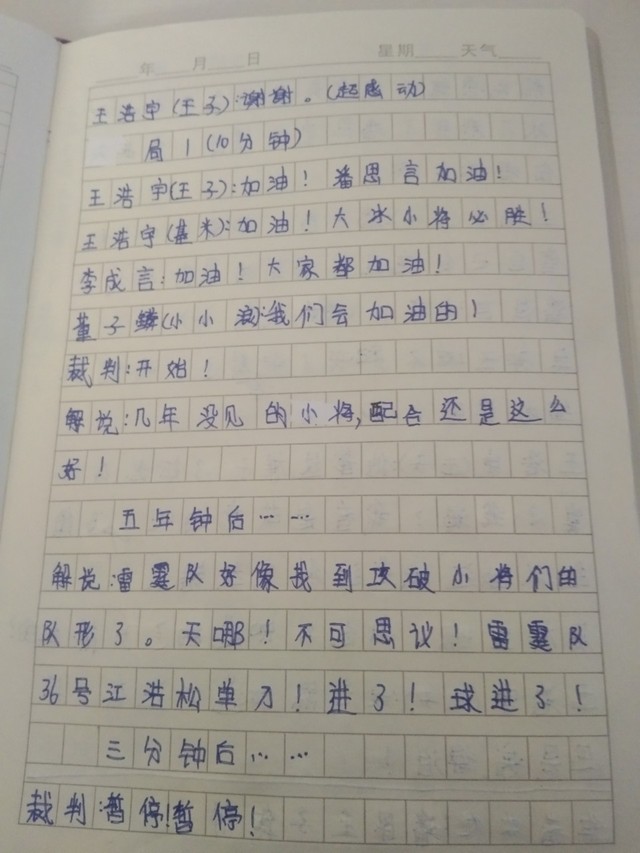 年 月 日 星期 天气
王浩宇(王子):谢谢。(超感动)
局1(10分钟)
王浩宇(王子):加油!潘思言加油!
王浩宇(基米):加油!大冰小将必胜!
李成言:加油!大家都加油!
董子鳞(小小浪):我们会加油的!
裁判:开始!
解说:几年没见的小将,配合还是这么
好!
五年钟后……
解说:雷霆队好像找到攻破小将们的
队形了。天哪!不可思议!雷霆队
36号江浩松单刀!进了!球进了!
三分钟后……
裁判:暂停!暂停!